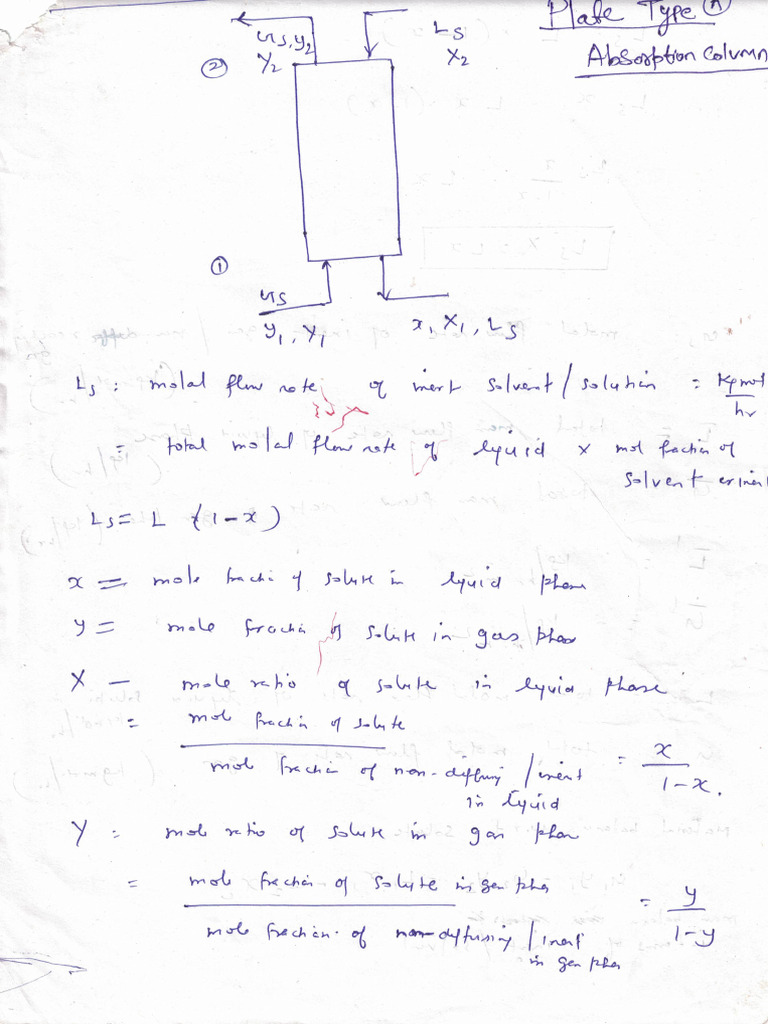 Plate Type A
Absorption Column
Gs, y2
Y2
Ls
X2
2
1
Gs
y1, Y1
x1 X1, Ls
Ls : molal flow rate of inert solvent/solution = Kgmol/hr
= total molal flow rate of liquid x mol fraction of
solvent or inert
Ls = L (1-x)
x = mole fraction of solute in liquid phase
y = mole fraction of solute in gas phase
X - mole ratio of solute in liquid phase
= mole fraction of solute / mole fraction of non-diffusing/inert in liquid = x / 1-x.
Y = mole ratio of solute in gas phase
= mole fraction of solute in gas phase / mole fraction of non-diffusing/inert in gas phase = y / 1-y